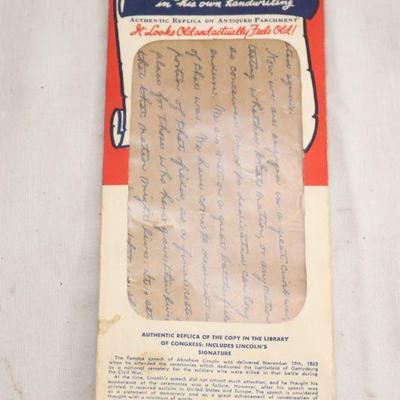 in his own handwriting
AUTHENTIC REPLICA ON ANTIQUED PARCHMENT
It Looks Old and actually Feels Old!
Now we are engaged in a great civil war,
testing whether that nation, or any nation
so conceived and so dedicated can long
endure. We are met on a great battle field
of that war. We have come to dedicate a
portion of that field, as a final resting
place for those who here gave their lives
that that nation might live. It is alto
AUTHENTIC REPLICA OF THE COPY IN THE LIBRARY
OF CONGRESS: INCLUDES LINCOLN'S
SIGNATURE
The famous speech of Abraham Lincoln was delivered November 19th, 1863
when he attended the ceremonies which dedicated the battlefield of Gettysburg
as a national cemetery for the soldiers who were killed in that battle during
the Civil War.
At the time, Lincoln's speech did not attract much attention, and he thought his
appearance at the ceremonies was a failure. However, after his speech was
printed, it received acclaim in United States and Europe. The speech is considered
as a statement of democracy and as a great achievement of condensation of
thought into a minimum of words.